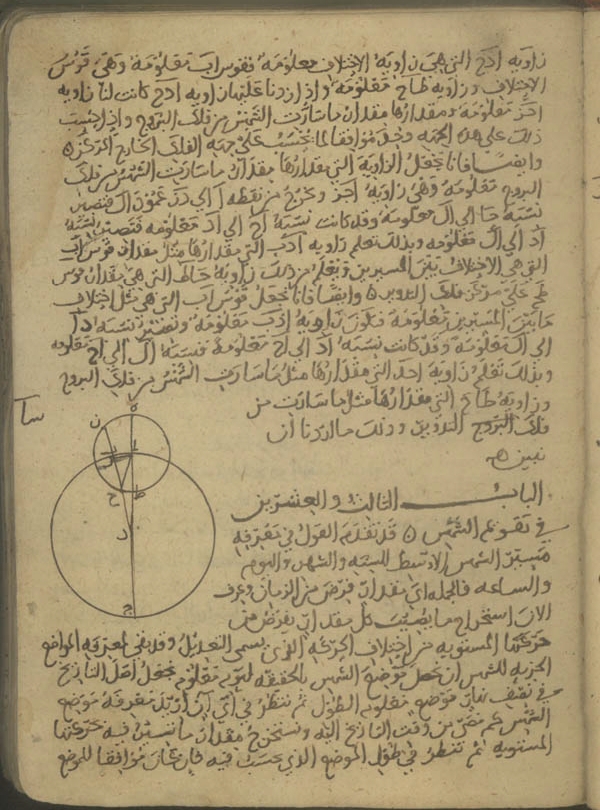 زاويه ادح التي هي زاويه الاختلاف معلومه فقوس اب معلومه وهي قوس
الاختلاف وزاويه طاح معلومه واذا زدنا عليها زاويه ادح كانت لنا زاويه
معلومه ومقدارها مقدار ما سارت الشمس من فلك البروج واذا حسب
ذلك على هذه الجهه وجد موافقا لما يحسب على جهه الفلك الخارج المركز
وايضا فانا نجعل الزاويه التي مقدارها مقدار ما سارت الشمس من فلك
البروج معلومه وهي زاويه ونخرج من نقطه ا الى عمود ال فتصير
نسبه الى ال معلومه وقد كانت نسبه اح الى اد معلومه فتصير نسبه
اد الى ال معلومه وبذلك نعلم زاويه ادب التي مقدارها مثل مقدار قوس اب
التي هي الاختلاف بين المسيرين ونعلم من ذلك زاويه حاط التي هي بمقدار قوس
طح على مركز فلك التدوير وايضا فانا نجعل قوس اب التي هي مثل اختلاف
ما بين المسيرين معلومه فتكون زاويه ادب معلومه وتصير نسبه دا
الى ال معلومه وقد كانت نسبه اد الى اح معلومه فنسبه ال الى اح معلومه
وبذلك نعلم زاويه احد التي مقدارها مثل ما سارت الشمس من فلك البروج
وزاويه طاح التي مقدارها مثل ما سارت من
فلك التدوير وذلك ما اردنا ان
نبين
الباب الثالث والعشرين
في تقويم الشمس قد تقدم القول في معرفه
مسير الشمس الاوسط للسنه والشهر واليوم
والساعه فالجمله اي مقدار فرض من الزمان ونعرف
الان استخراج ما يصيب كل مقدار يفرض من
حركتها المستويه من اختلاف الجزئيه الذي يسمى التعديل وقد بقي لمعرفه المواضع
الجزئيه للشمس ان نجعل موضع الشمس بالحقيقه ليوم معلوم نجعل اصل التاريخ
في نصف نهار موضع معلوم الطول ثم ننظر في اي ان اردنا معرفه موضع
الشمس كم مضى من وقت التاريخ اليه ونستخرج مقدار ما تسير فيه بحركتها
المستويه ثم ننظر في طول الموضع الذي نحسب فيه فان كان موافقا للموضع